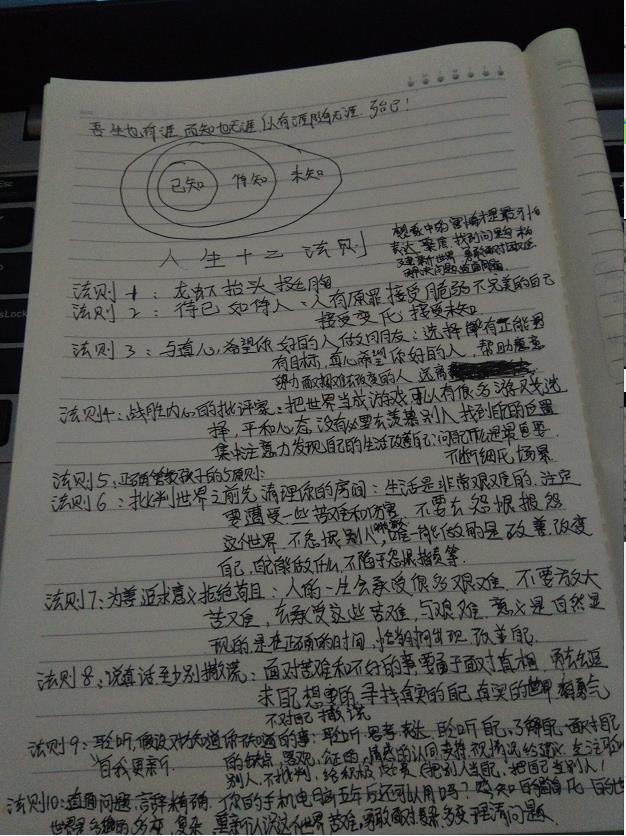 吾生也有涯 而知也无涯 以有涯随无涯 殆已!
已知 待知 未知
人生十二法则
想象中的害怕才是最可怕
表达 找到问题的
法则1:龙虾抬头挺胸
法则2:待己如待人:人有原罪 接受脆弱不完美的自己
接受变化 接受未知
法则3:与真心希望你好的人做朋友:选择
有目标,真心希望你好的人,帮助愿意
努力面对艰难去改变的人 远离
法则4:战胜内心的批评家:把世界当成游戏,人有很多游戏选
择,平和心态 没有必要去羡慕别人 找到自己的位置
集中注意力发现自己的生活 改善自己 问自己什么是最重要
不断细化场景
法则5:正确管教孩子的5原则:
法则6:批判世界之前先清理你的房间:生活是非常艰难的,注定
要遭受一些苦难和伤害 不要去怨恨报怨
这个世界 不怨恨别人 唯一能做的是改善改变
自己,自己能做什么,不陷于怨恨指责等.
法则7:为善 追求意义 拒绝苟且:人的一生会承受很多艰难 不要放大
苦难,去承受这些苦难,与艰难.意义是自然显
现的,是在正确的时间,恰当的 出现 改善自己.
法则8:说真话至少别撒谎:面对苦难和不好的事,要勇于面对真相 勇敢去追
求自己想要的 寻找真实的自己 真实的世界 有勇气
不对自己撒谎
法则9:聆听,假设对方知道你不知道的事:聆听 思考 表达 聆听自己,了解自己 面对自己
自我更新 的缺点,客观,
别人,不批判,给 把别人当自己,把自己当别人!
法则10:直面问题,言辞精确 你的手机电脑五年后还可以用吗?
世界是 复杂 重新认识这个世界 苦难,勇敢面对 理清问题.